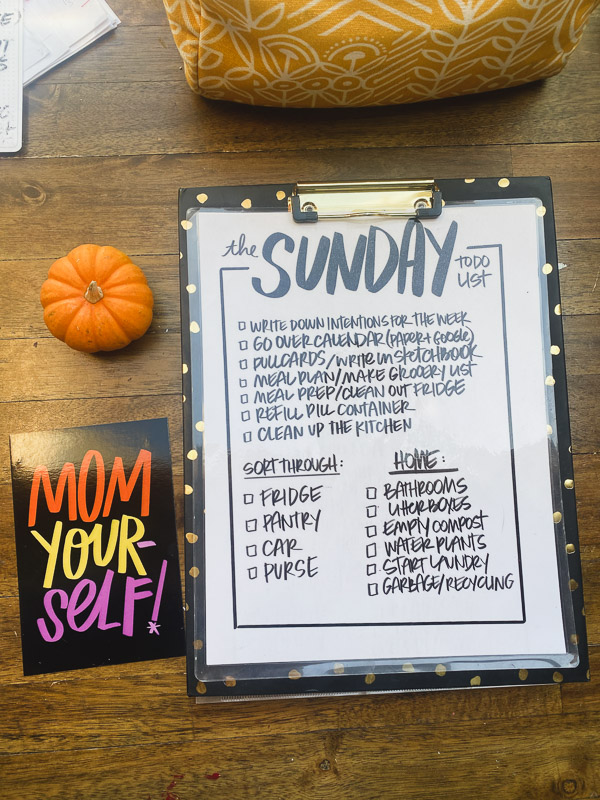 the SUNDAY TODO LIST
WRITE DOWN INTENTIONS FOR THE WEEK
GO OVER CALENDAR (PAPER + GOOGLE)
PULL CARDS / WRITE IN SKETCHBOOK
MEAL PLAN/MAKE GROCERY LIST
MEAL PREP/CLEAN OUT FRIDGE
REFILL PILL CONTAINER
CLEAN UP THE KITCHEN
SORT THROUGH:
FRIDGE
PANTRY
CAR
PURSE
HOME:
BATHROOMS
EMPTY COMPOST
WATER PLANTS
START LAUNDRY
GARBAGE/RECYCLING
MOM
YOUR-
SELF!